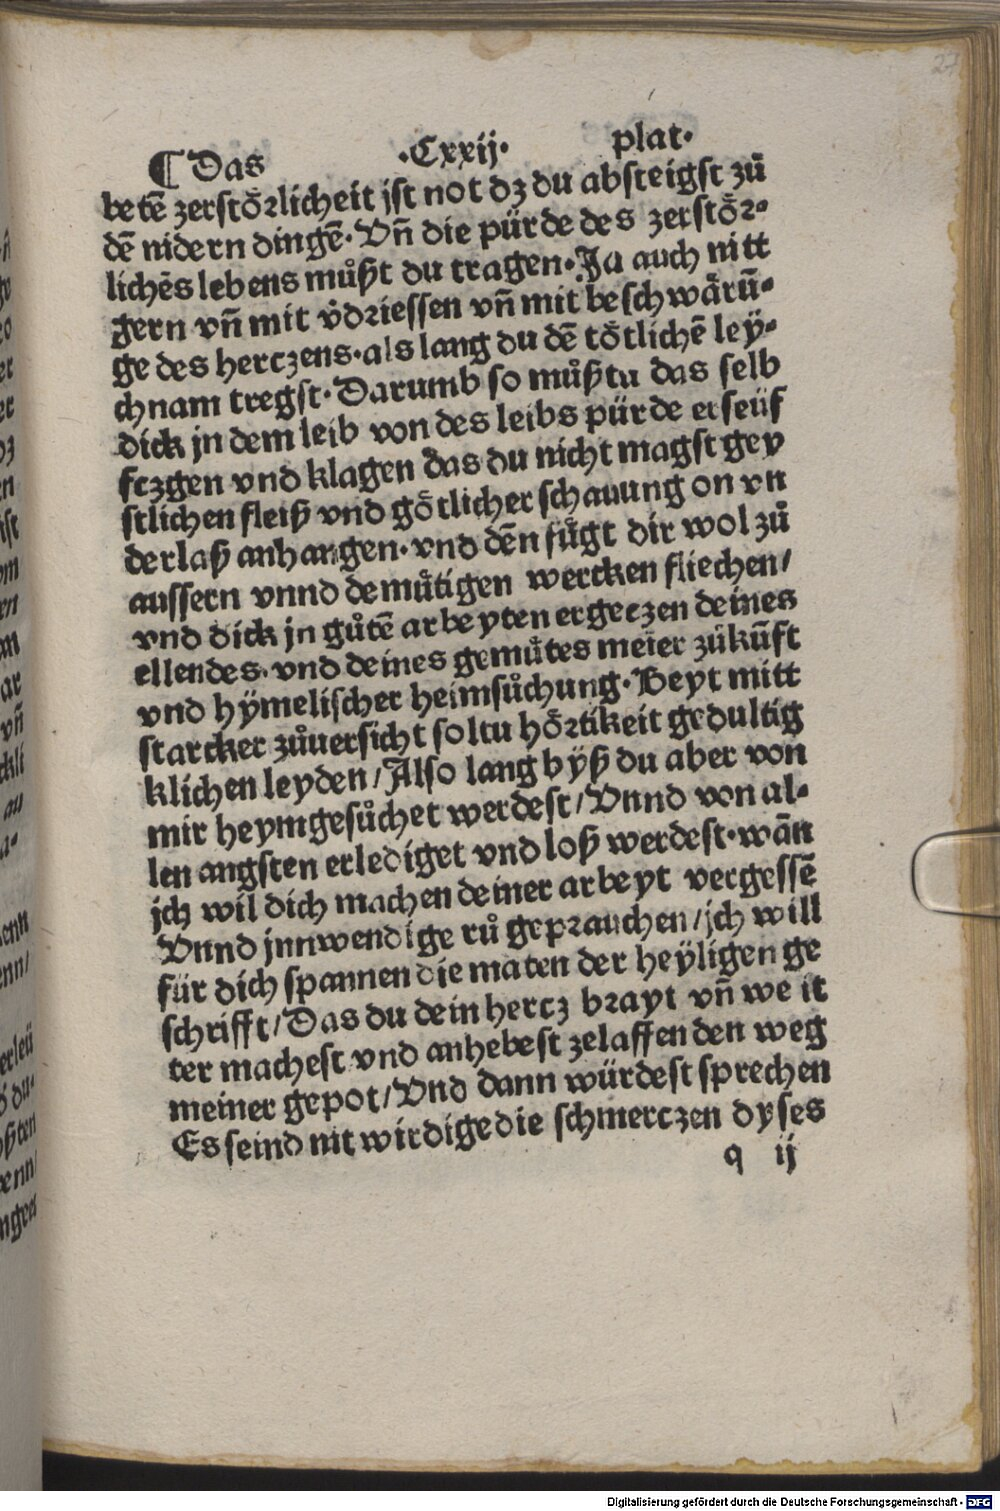 27
¶ Das .Cxxij. plat.
betē zerstoͤrlicheit jst not dz du absteigst zuͦ
dē nidern dingē. Vn̄ die pürde des zerstoͤr-
lichēs lebens muͦßt du tragen. Ja auch nitt
gern vn̄ mit v̓driessen vn̄ mit beschwaͤrū-
ge des hertzens. als lang du dē toͤtlichē ley-
chnam tregst. Darumb so muͦßtu das selb
dick jn dem leib von des leibs pürde erseüf
fczgen vnd klagen das du nicht magst gey
stlichen fleiß vnd goͤtlicher schauung on vn
derlaß anhangen. vnd dēn fuͤgt dir wol zuͦ
aussern vnnd demuͤtigen wercken fliechen/
vnd dick jn guͦtē arbeyten ergeczen deines
ellendes. vnd deines gemuͤtes meier zuͦkūft
vnd hÿmelischer heimsuͦchung. Beyt mitt
starcker zuͦuersicht soltu hoͤrtikeit gedultig
klichen leyden/ Also lang byß du aber von
mir heymgesuͦchet werdest/ Vnnd von al-
len angsten erlediget vnd loß werdest. wān
jch wil dich machen deiner arbeyt vergessē
Vnnd jnnwendige ruͦ geprauchen/ jch will
für dich spannen die maten der heÿligen ge
schrifft/ Das du dein hertz brayt vn̄ we it
ter machest vnd anhebest zelaffen den weg
meiner gepot/ Vnd dann würdest sprechen
Es seind nit wirdige die schmerczen dyses
q ij
Digitalisierung gefördert durch die Deutsche Forschungsgemeinschaft - DFG